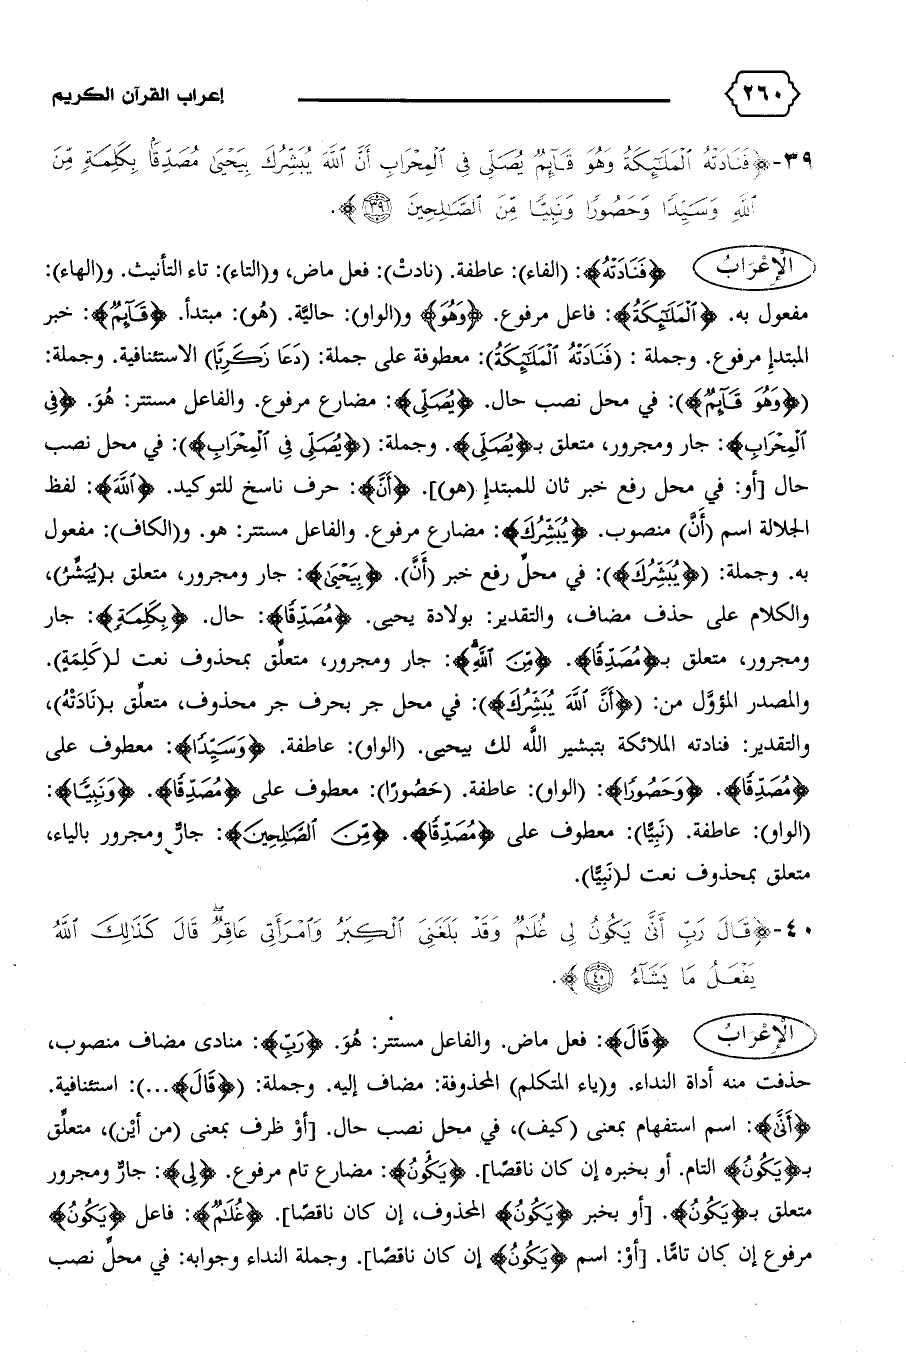 ٢٦٠
إعراب القرآن الكريم
٣٩- ﴿فَنَادَتْهُ ٱلْمَلَٰٓئِكَةُ وَهُوَ قَآئِمٌ يُصَلِّى فِى ٱلْمِحْرَابِ أَنَّ ٱللَّهَ يُبَشِّرُكَ بِيَحْيَىٰ مُصَدِّقًۢا بِكَلِمَةٍ مِّنَ
ٱللَّهِ وَسَيِّدًا وَحَصُورًا وَنَبِيًّا مِّنَ ٱلصَّٰلِحِينَ ٣٩﴾.
الْإِعْرَابُ ﴿فَنَادَتْهُ﴾: (الفاء): عاطفة. (نادتْ): فعل ماض، و(التاء): تاء التأنيث. و(الهاء):
مفعول به. ﴿ٱلْمَلَٰٓئِكَةُ﴾: فاعل مرفوع. ﴿وَهُوَ﴾ و(الواو): حاليَّة. (هُو): مبتدأ. ﴿قَآئِمٌ﴾: خبر
المبتدإ مرفوع. وجملة : (فَنَادَتْهُ ٱلْمَلَٰٓئِكَةُ): معطوفة على جملة: (دَعَا زَكَرِيَّا) الاستئنافية. وجملة:
(﴿وَهُوَ قَآئِمٌ﴾): في محل نصب حال. ﴿يُصَلِّى﴾: مضارع مرفوع. والفاعل مستتر: هُوَ. ﴿فِى
ٱلْمِحْرَابِ﴾: جار ومجرور، متعلق بـ﴿يُصَلِّى﴾. وجملة: (﴿يُصَلِّى فِى ٱلْمِحْرَابِ﴾): في محل نصب
حال [أو: في محل رفع خبر ثان للمبتدإ (هو)]. ﴿أَنَّ﴾: حرف ناسخ للتوكيد. ﴿ٱللَّهَ﴾: لفظ
الجلالة اسم (أَنَّ) منصوب. ﴿يُبَشِّرُكَ﴾: مضارع مرفوع. والفاعل مستتر: هو. و(الكاف): مفعول
به. وجملة: (﴿يُبَشِّرُكَ﴾): في محلِّ رفع خبر (أَنَّ). ﴿بِيَحْيَىٰ﴾: جار ومجرور، متعلق بـ(يُبَشِّرُ)،
والكلام على حذف مضاف، والتقدير: بولادة يحيى. ﴿مُصَدِّقًا﴾: حال. ﴿بِكَلِمَةٍ﴾: جار
ومجرور، متعلق بـ﴿مُصَدِّقًا﴾. ﴿مِّنَ ٱللَّهِ﴾: جار ومجرور، متعلِّق بمحذوف نعت لـ(كَلِمَةٍ).
والمصدر المؤوَّل من: (﴿أَنَّ ٱللَّهَ يُبَشِّرُكَ﴾): في محل جر بحرف جر محذوف، متعلِّق بـ(نَادَتْهُ)،
والتقدير: فنادته الملائكة بتبشير اللَّه لك بيحيى. (الواو): عاطفة. ﴿وَسَيِّدًا﴾: معطوف على
﴿مُصَدِّقًا﴾. ﴿وَحَصُورًا﴾: (الواو): عاطفة. (حَصُورًا): معطوف على ﴿مُصَدِّقًا﴾. ﴿وَنَبِيًّا﴾:
(الواو): عاطفة. (نَبِيًّا): معطوف على ﴿مُصَدِّقًا﴾. ﴿مِّنَ ٱلصَّٰلِحِينَ﴾: جارٌّ ومجرور بالياء،
متعلق بمحذوف نعت لـ(نَبِيًّا).
٤٠- ﴿قَالَ رَبِّ أَنَّىٰ يَكُونُ لِى غُلَٰمٌ وَقَدْ بَلَغَنِىَ ٱلْكِبَرُ وَٱمْرَأَتِى عَاقِرٌۖ قَالَ كَذَٰلِكَ ٱللَّهُ
يَفْعَلُ مَا يَشَآءُ ٤٠﴾.
الْإِعْرَابُ ﴿قَالَ﴾: فعل ماض. والفاعل مستتر: هُوَ. ﴿رَبِّ﴾: منادى مضاف منصوب،
حذفت منه أداة النداء. و(ياء المتكلم) المحذوفة: مضاف إليه. وجملة: (﴿قَالَ﴾...): استئنافية.
﴿أَنَّىٰ﴾: اسم استفهام بمعنى (كيف)، في محل نصب حال. [أوْ ظرف بمعنى (من أيْن)، متعلِّق
بـ﴿يَكُونُ﴾ التام. أو بخبره إن كان ناقصًا]. ﴿يَكُونُ﴾: مضارع تام مرفوع. ﴿لِى﴾: جارٌّ ومجرور
متعلق بـ﴿يَكُونُ﴾. [أو بخبر ﴿يَكُونُ﴾ المحذوف، إن كان ناقصًا]. ﴿غُلَٰمٌ﴾: فاعل ﴿يَكُونُ﴾
مرفوع إن كان تامًّا. [أوْ: اسم ﴿يَكُونُ﴾ إن كان ناقصًا]. وجملة النداء وجوابه: في محلِّ نصب